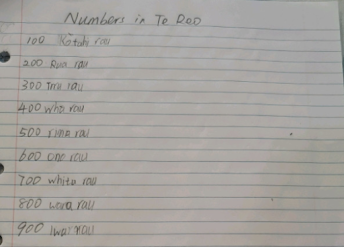 Numbers in Te Reo
100 Kotahi rau
200 Rua rau
300 Toru rau
400 wha rau
500 rima rau
600 ono rau
700 whitu rau
800 wara rau
900 iwa rau